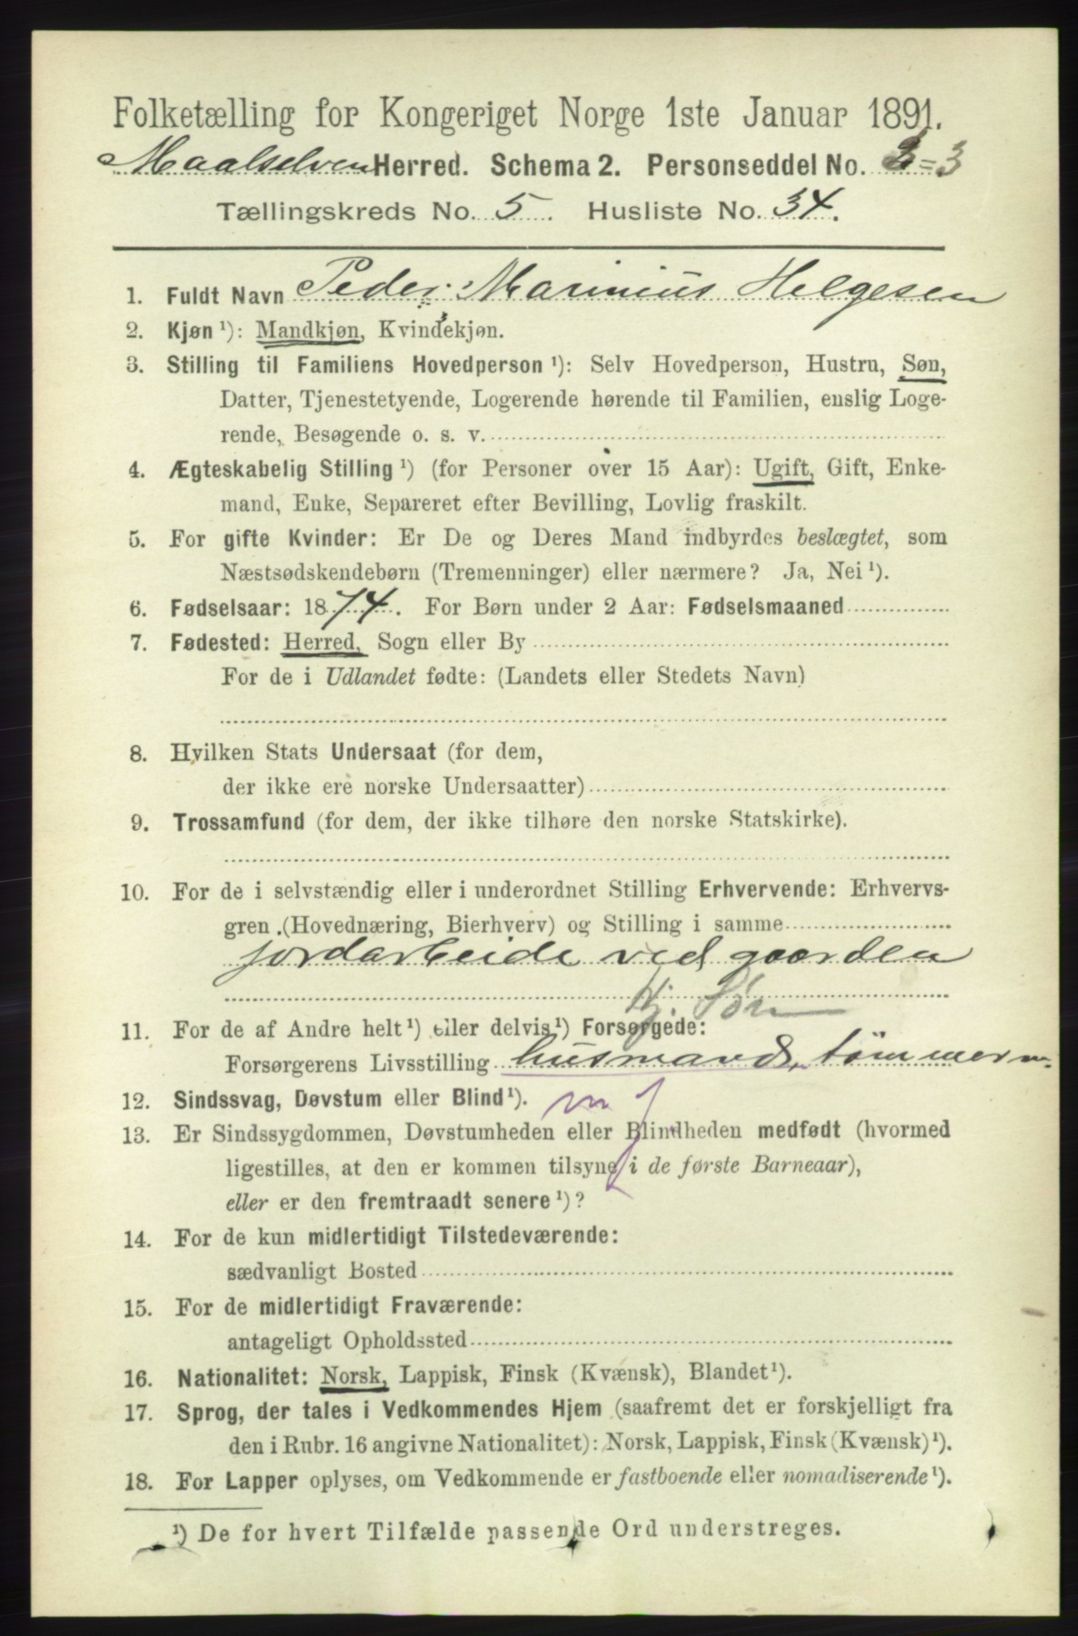 Folketælling for Kongeriget Norge 1ste Januar 1891.
Maalselven Herred. Schema 2. Personseddel No. 3=3
Tællingskreds No. 5. Husliste No. 34.
1. Fuldt Navn Peder Marinius Helgesen
2. Kjøn ¹): Mandkjøn, Kvindekjøn.
3. Stilling til Familiens Hovedperson ¹): Selv Hovedperson, Hustru, Søn,
Datter, Tjenestetyende, Logerende hørende til Familien, enslig Loge-
rende, Besøgende o. s. v.
4. Ægteskabelig Stilling ¹) (for Personer over 15 Aar): Ugift, Gift, Enke-
mand, Enke, Separeret efter Bevilling, Lovlig fraskilt.
5. For gifte Kvinder: Er De og Deres Mand indbyrdes beslægtet, som
Næstsødskendebørn (Tremenninger) eller nærmere? Ja, Nei ¹).
6. Fødselsaar: 1874. For Børn under 2 Aar: Fødselsmaaned
7. Fødested: Herred, Sogn eller By
For de i Udlandet fødte: (Landets eller Stedets Navn)
8. Hvilken Stats Undersaat (for dem,
der ikke ere norske Undersaatter)
9. Trossamfund (for dem, der ikke tilhøre den norske Statskirke).
10. For de i selvstændig eller i underordnet Stilling Erhvervende: Erhvervs-
gren (Hovednæring, Bierhverv) og Stilling i samme
jordarbeide ved gaarden
Hj. Søn
11. For de af Andre helt ¹) eller delvis ¹) Forsørgede:
Forsørgerens Livsstilling husmand, tømmerm.
12. Sindssvag, Døvstum eller Blind ¹).
13. Er Sindssygdommen, Døvstumheden eller Blindheden medfødt (hvormed
ligestilles, at den er kommen tilsyne i de første Barneaar),
eller er den fremtraadt senere ¹)?
14. For de kun midlertidigt Tilstedeværende:
sædvanligt Bosted
15. For de midlertidigt Fraværende:
antageligt Opholdssted
16. Nationalitet: Norsk, Lappisk, Finsk (Kvænsk), Blandet ¹).
17. Sprog, der tales i Vedkommendes Hjem (saafremt det er forskjelligt fra
den i Rubr. 16 angivne Nationalitet): Norsk, Lappisk, Finsk (Kvænsk) ¹).
18. For Lapper oplyses, om Vedkommende er fastboende eller nomadiserende ¹).
¹) De for hvert Tilfælde passende Ord understreges.